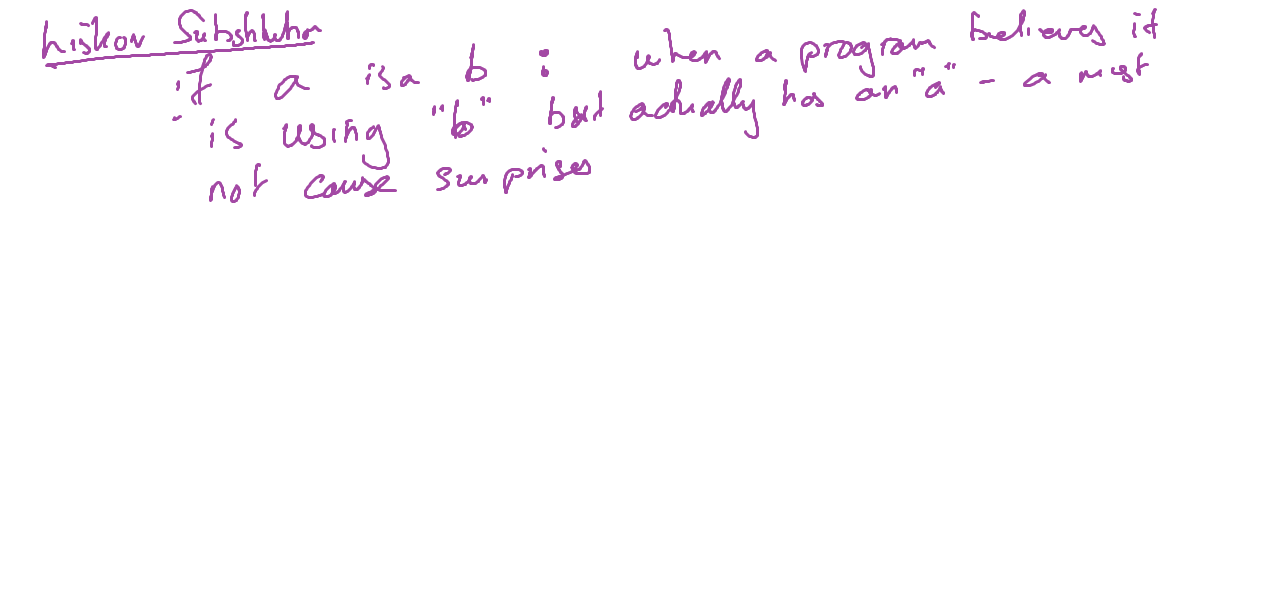 Liskov Substitution
if a is a b : when a program believes it
is using "b" but actually has an "a" - a must
not cause surprises